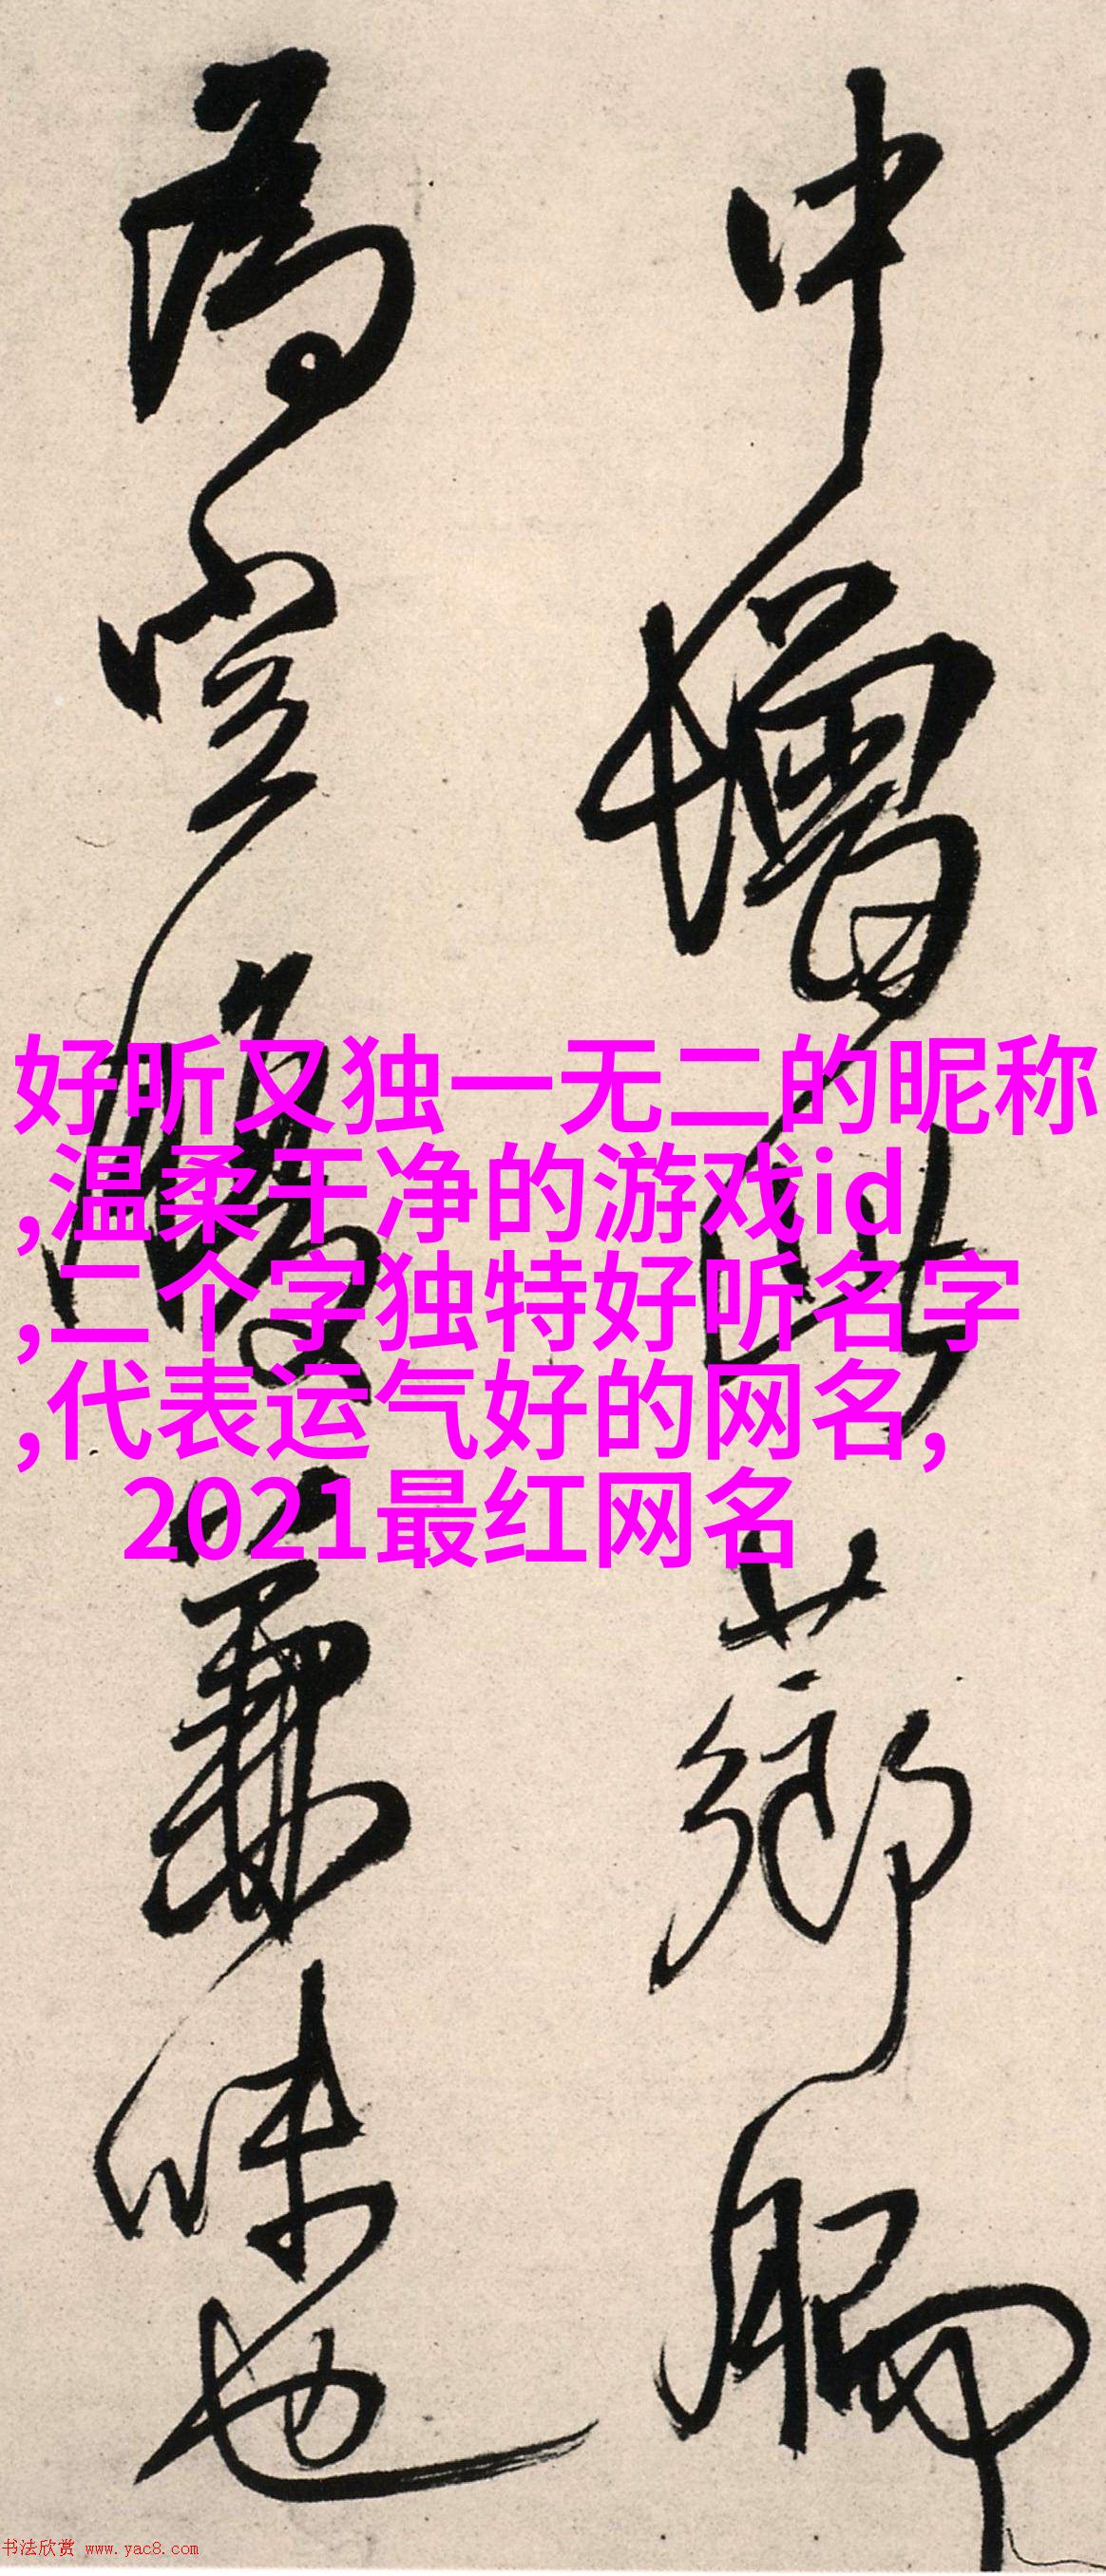 中增此
為兼味也
好昕又独一无二的昵称
,温柔干净的游戏id
,二个字独特好听名字
,代表运气好的网名,
2021最红网名
书法欣赏 www.yac8.com